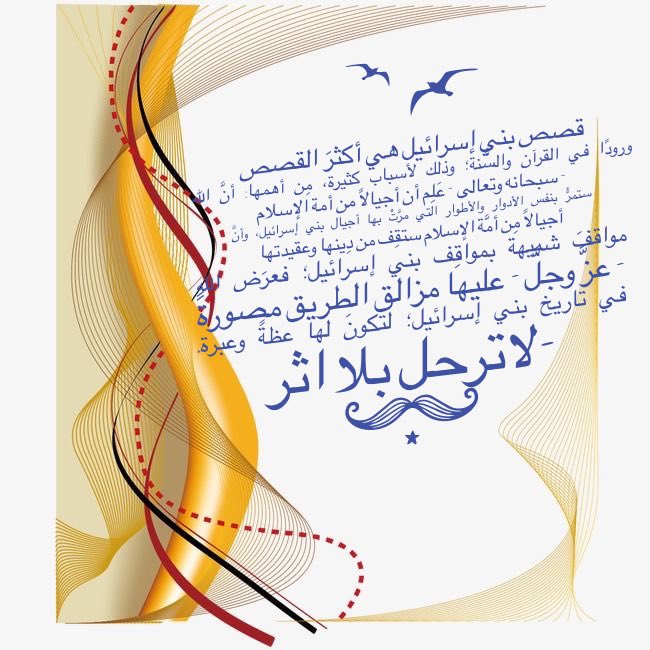 قصص بني إسرائيل هي أكثرَ القصص
ورودًا في القرآن والسُّنة؛ وذلك لأسباب كثيرة، مِن أهمها: أنَّ الله
- سبحانه وتعالى - عَلِم أن أجيالاً من أمة الإسلام
ستمرُّ بنفس الأدوار والأطوار التي مرَّتْ بها أجيال بني إسرائيل، وأنَّ
أجيالاً مِن أمَّة الإسلام ستقف من دِينها وعقيدتها
مواقفَ شبيهة بمواقِف بني إسرائيل؛ فعرَض لهم
- عزَّ وجلَّ - عليها مزالق الطريق مصورةً
في تاريخ بني إسرائيل؛ لتكونَ لها عظةً وعبرة.
-لاترحل بلا اثر